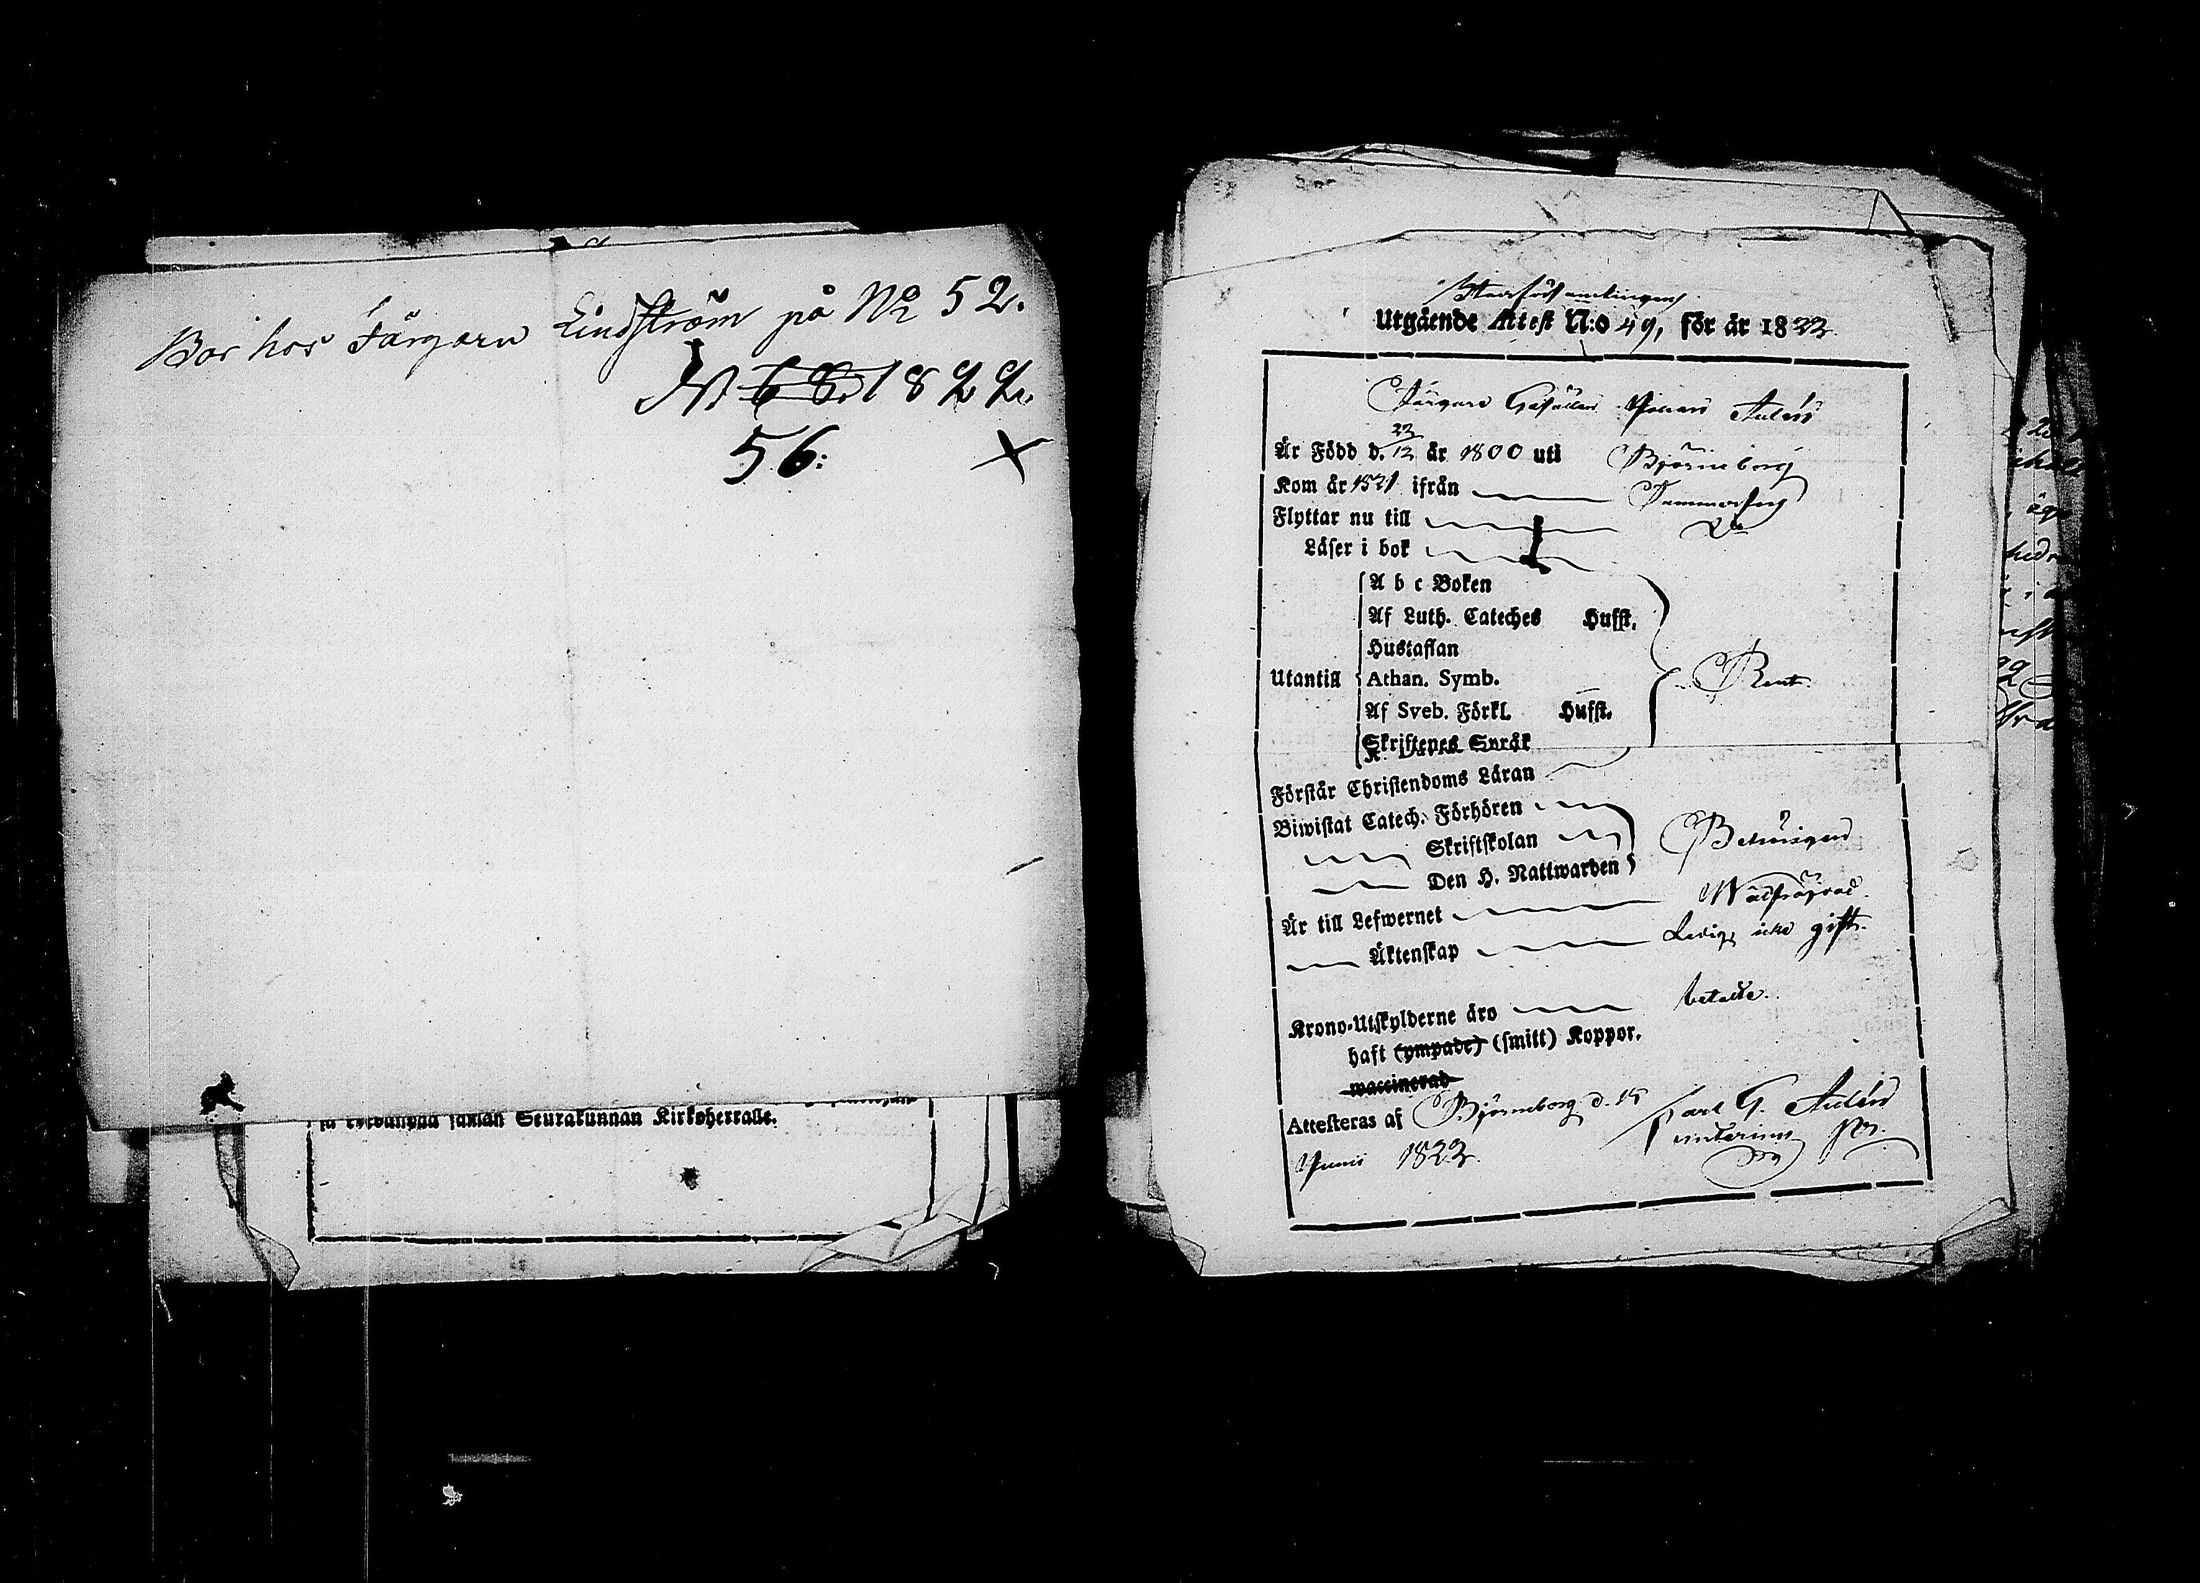 Bor hos Färgarn Lindström på No 52.
No 68. 1822.
56:
ja Seurakunnan Kirkoherralle.
Stadsförsamlingens
Utgående Attest N:o 49, för år 1822
Färgare Gesällen Johan
Är Född d. 22/12 år 1800 uti Björneborg
Kom år 1821 ifrån Tammerfors
Flyttar nu till
Läser i bok
A b c Boken
Af Luth. Cateches Hufft.
Hustaflan
Utantill Athan. Symb. Rent
Af Sveb. Förkl. Hufft.
Skriftenes Språk
Förstår Christendoms Läran
Biwistat Catech. Förhören
Skriftskolan Behörigen
Den H. Nattwarden
Är till Lefwernet Wälfräjdad
Äktenskap Ledig, icke gift.
Krono-Utskylderne äro betalte.
haft (ympade) (smitt) Koppor.
waccinerad
Attesteras af Björneborg d. 15 Carl G.
Junii 1822.